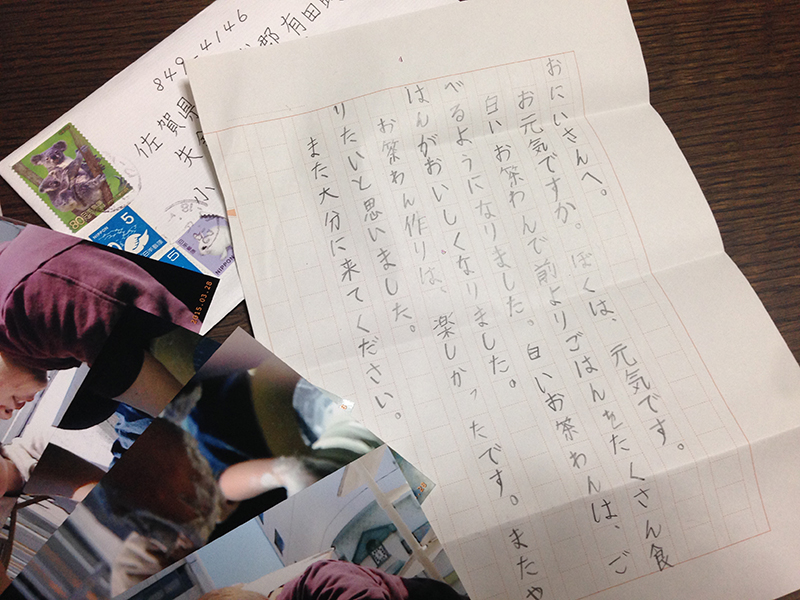 おにいさんへ。
お元気ですか。ぼくは、元気です。
白いお茶わんで前よりごはんをたくさん食
べるようになりました。白いお茶わんは、ご
はんがおいしくなりました。
お茶わん作りは、楽しかったです。またや
りたいと思いました。
また大分に来てください。
849-4146
佐賀県
郡有田
小
80
NIPPON
5
5
NIPPON
2015.03.28